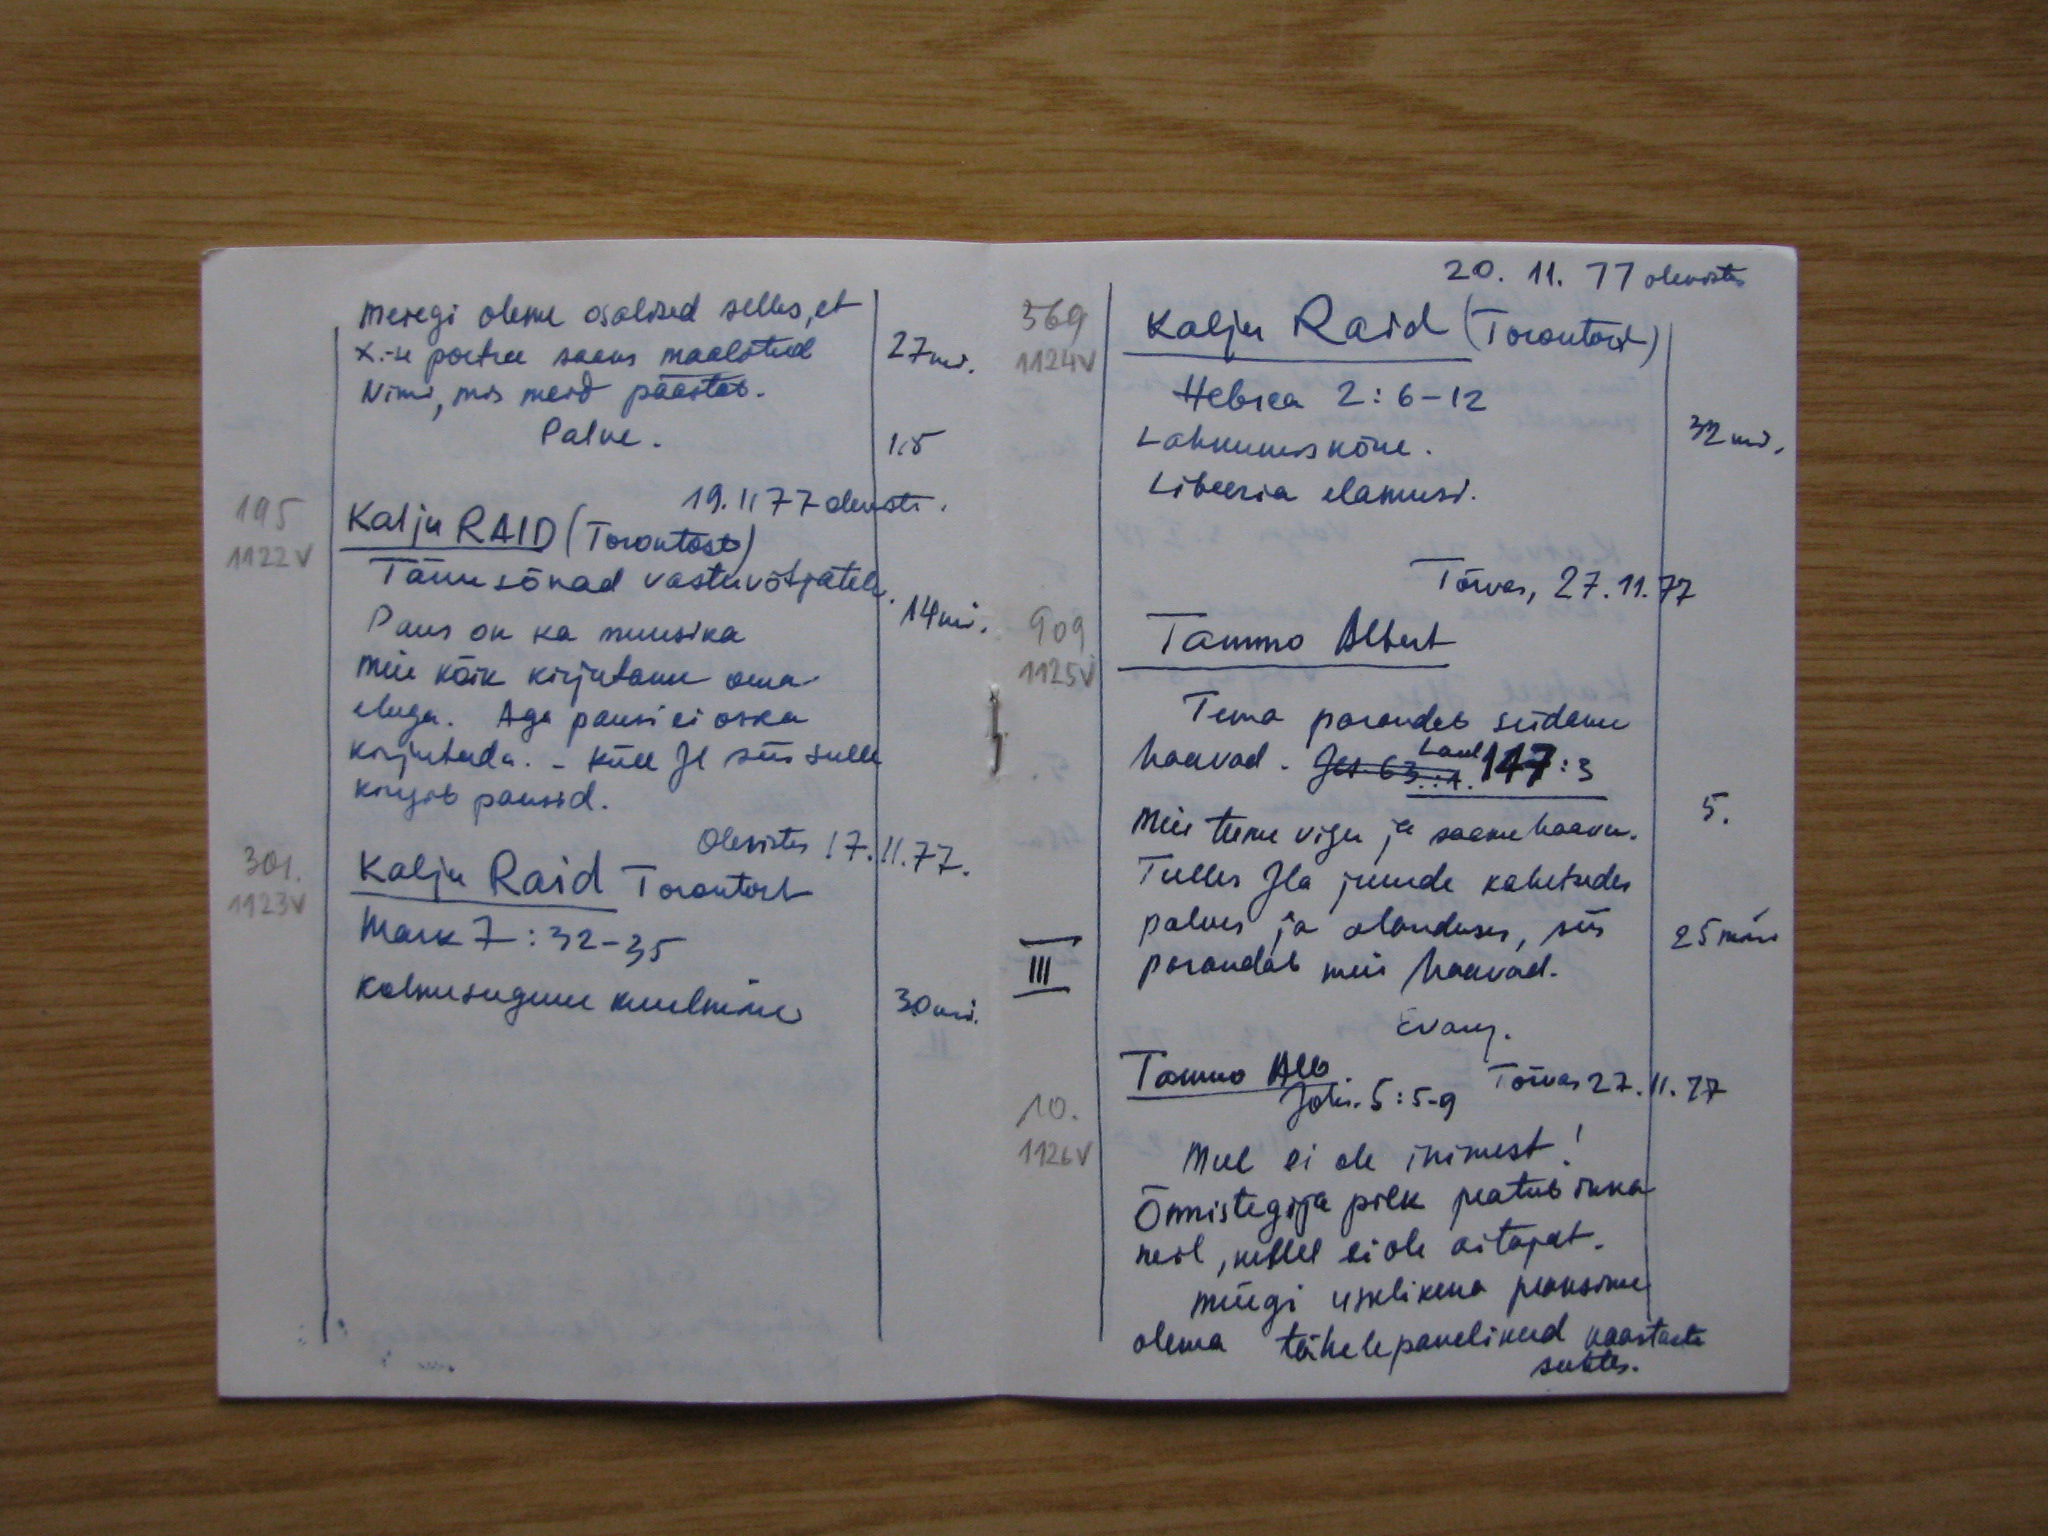 Meiegi oleme osalised selles, et
X.-se portree saaks maalitud 27 mi.
Nimi, mis meid päästab.
Palve. 1.5
19.11 77 oleviste.
195
1122V
Kalju RAID (Torontost)
Tänusõnad vastuvõtjatele. 14 mi.
Paus on ka muusika
Meie kõik kirjutame oma
eluga. Aga pausi ei oska
kirjutada. - Küll Jl siis sulle
kirjut pausid.
Oleviste 17.11.77.
301.
1123V
Kalju Raid Torontost
Mark 7:32-35
Kolmesugune kuulmine 30 mi.
20. 11. 77 oleviste
369
1124V
Kalju Raid (Torontost)
Hebrea 2:6-12
Lahkumiskõne. 32 mi.
Libeeria elamusi.
Tõrvas, 27.11.77
909
1125V
Tammo Albert
Tema parandab südame
haavad. Jes. 63.:1. Laul 147:3
Meie teeme vigu ja saame haavu. 5.
Tulles Jla juurde kahetsedes
palves ja alanduses, siis 25 min
parandab meie haavad.
III
Evang.
Tammo Alb. Tõrvas 27.11.77
Joh. 5:5-9
10.
1126V
Mul ei ole inimest!
Õnnistegija pilk peatub ikka
neil, kellel ei ole aitajat.
Meiegi usklikena peaksime
olema tähelepanelikud kaastaete
suhtes.